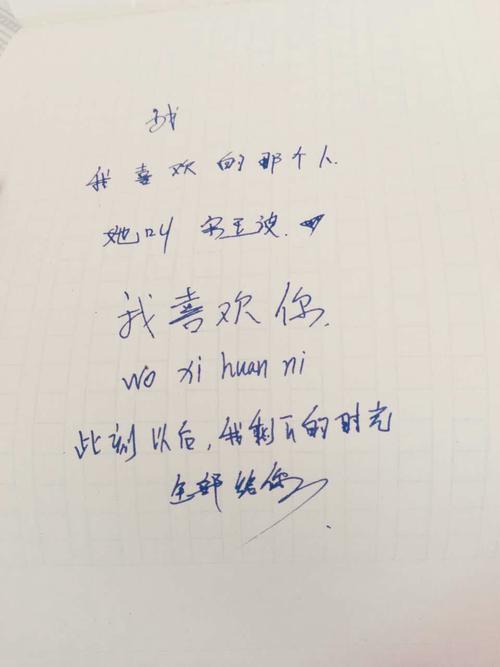 我
我喜欢的那个人.
她叫宋玉波.
我喜欢你.
wo xi huan ni
此刻以后,我剩下的时光
全部给你